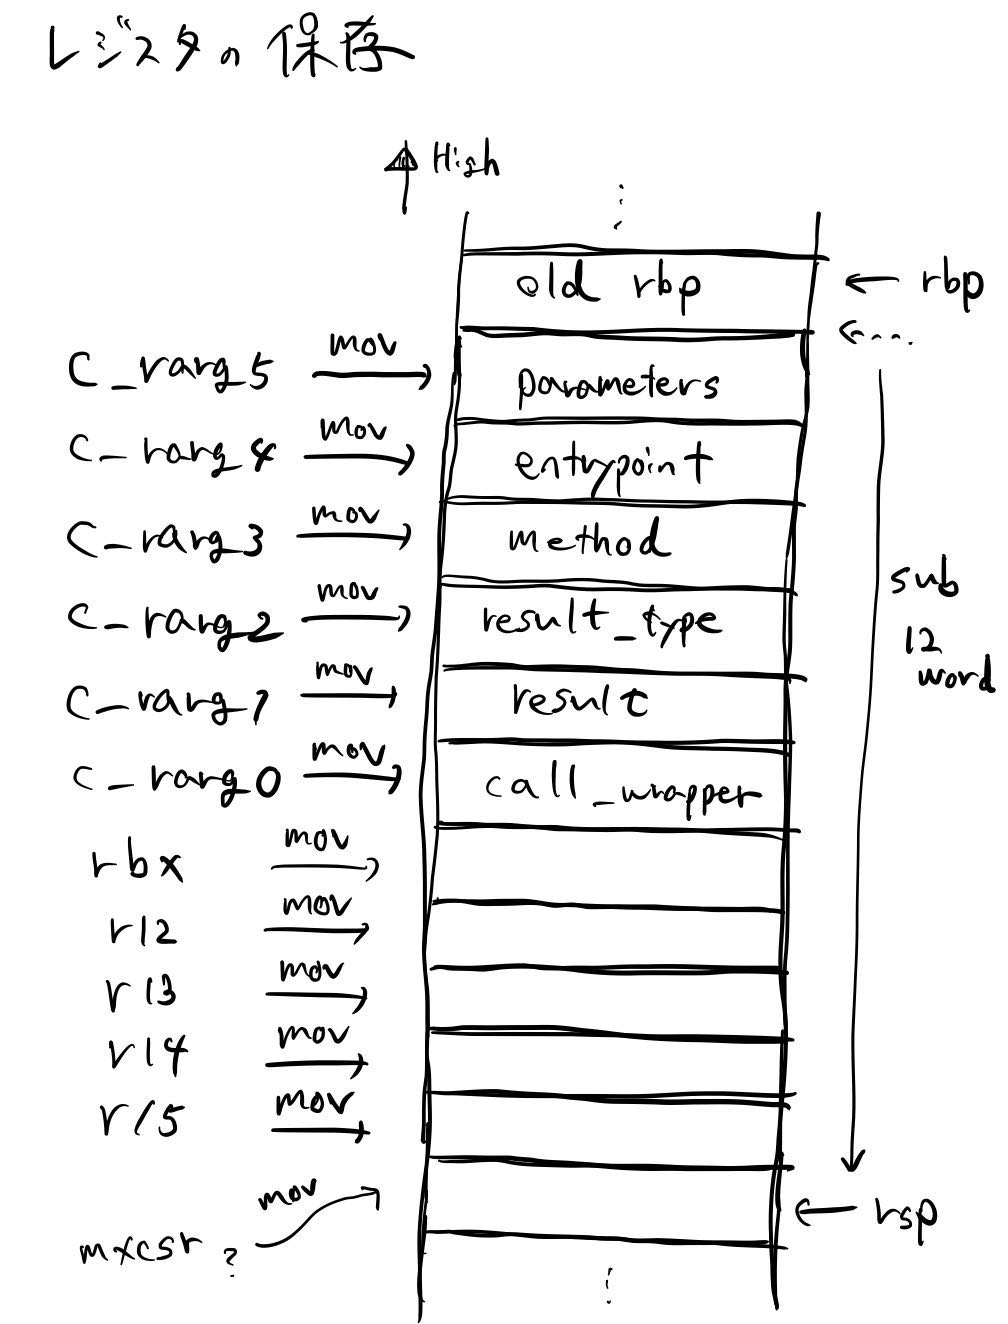 レジスタの保存
High
old rbp ← rbp
c_rarg_5 mov parameters
c_rarg_4 mov entrypoint
c_rarg_3 mov method
c_rarg_2 mov result_type
c_rarg_1 mov result
c_rarg_0 mov call_wrapper
sub
12
word
rbx mov
r12 mov
r13 mov
r14 mov
r15 mov
mxcsr ? mov
← rsp